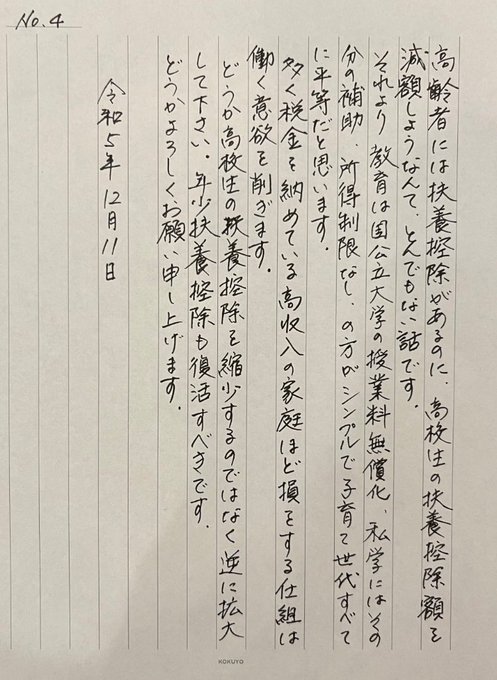 No.4
高齢者には扶養控除があるのに、高校生の扶養控除額を
減額しようなんて、とんでもない話です。
それより教育は国公立大学の授業料無償化、私学にはその
分の補助、所得制限なし、の方がシンプルで子育て世代すべて
に平等だと思います。
多く税金を納めている高収入の家庭ほど損をする仕組は
働く意欲を削ぎます。
どうか高校生の扶養控除を縮少するのではなく逆に拡大
して下さい。年少扶養控除も復活すべきです。
どうかよろしくお願い申し上げます。
令和5年12月11日
KOKUYO